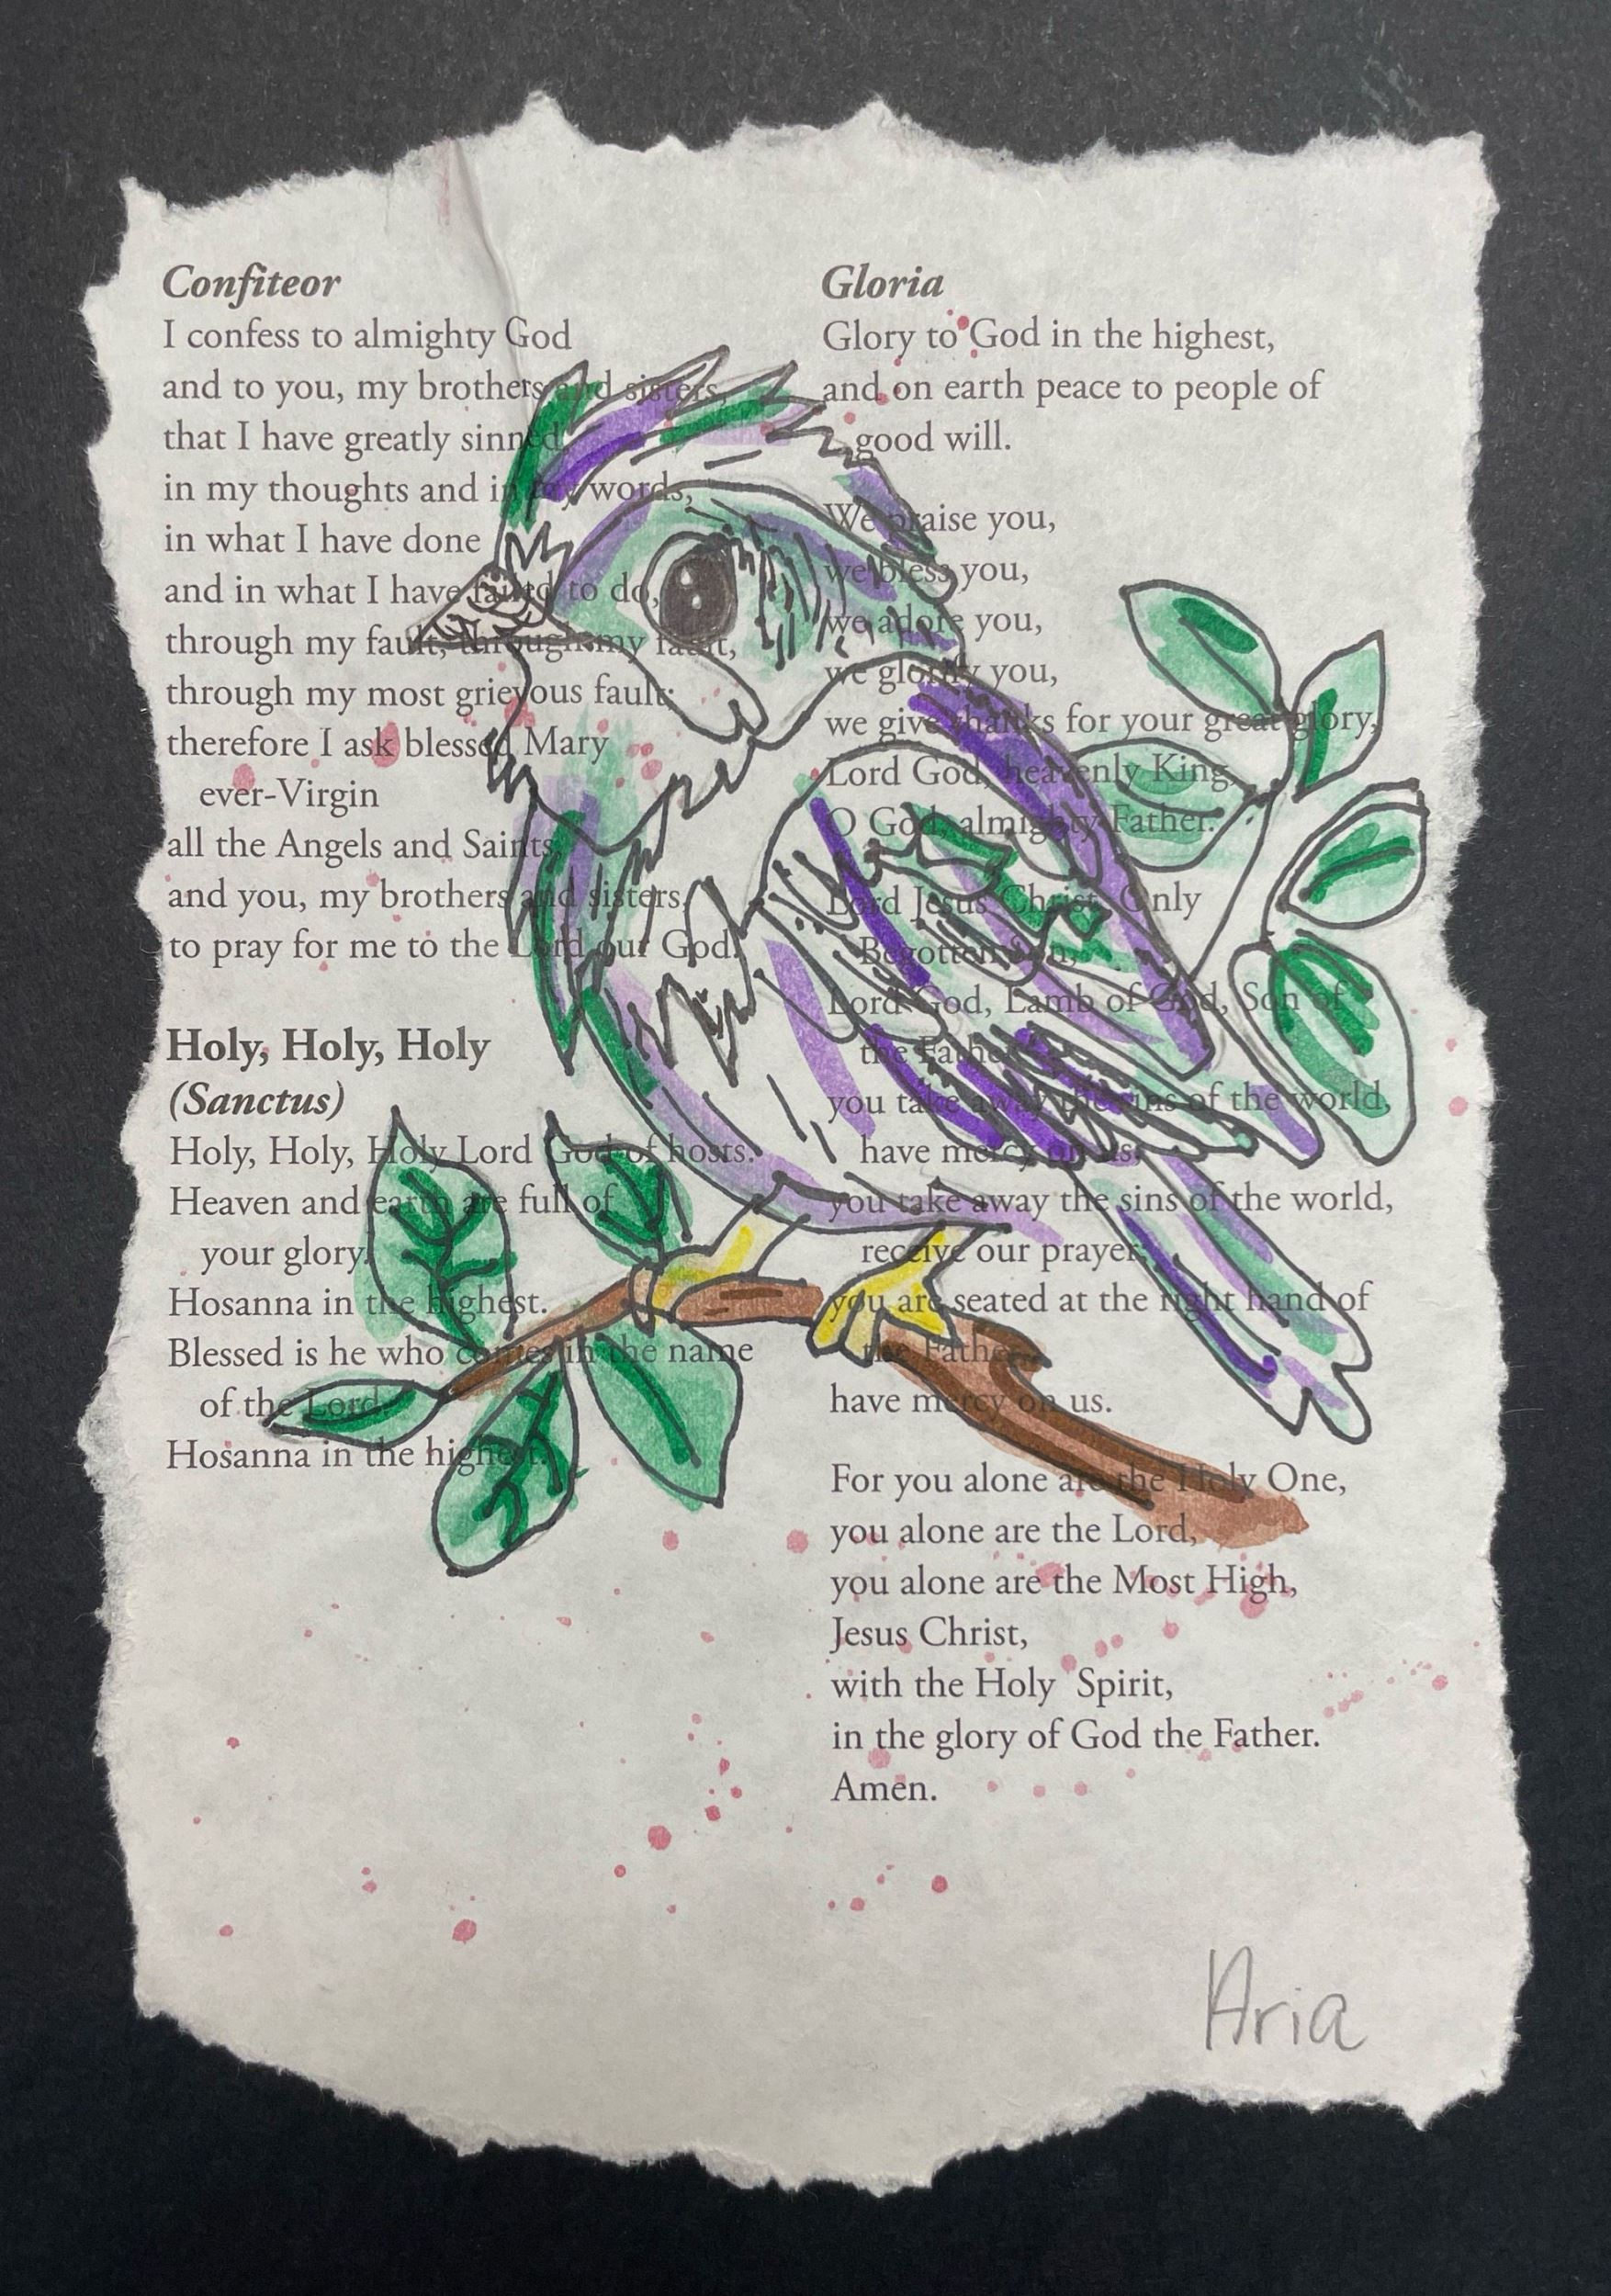 Confiteor
I confess to almighty God
and to you, my brothers and sisters,
that I have greatly sinned
in my thoughts and in my words,
in what I have done
and in what I have failed to do,
through my fault, through my fault,
through my most grievous fault;
therefore I ask blessed Mary
ever-Virgin
all the Angels and Saints,
and you, my brothers and sisters,
to pray for me to the Lord our God.
Holy, Holy, Holy
(Sanctus)
Holy, Holy, Holy Lord God of hosts.
Heaven and earth are full of
your glory.
Hosanna in the highest.
Blessed is he who comes in the name
of the Lord.
Hosanna in the highest.
Gloria
Glory to God in the highest,
and on earth peace to people of
good will.
We praise you,
we bless you,
we adore you,
we glorify you,
we give thanks for your great glory,
Lord God, heavenly King,
O God, almighty Father.
Lord Jesus Christ, Only
Begotten Son,
Lord God, Lamb of God, Son of
the Father,
you take away the sins of the world,
have mercy on us;
you take away the sins of the world,
receive our prayer;
you are seated at the right hand of
the Father,
have mercy on us.
For you alone are the Holy One,
you alone are the Lord,
you alone are the Most High,
Jesus Christ,
with the Holy Spirit,
in the glory of God the Father.
Amen.
Aria